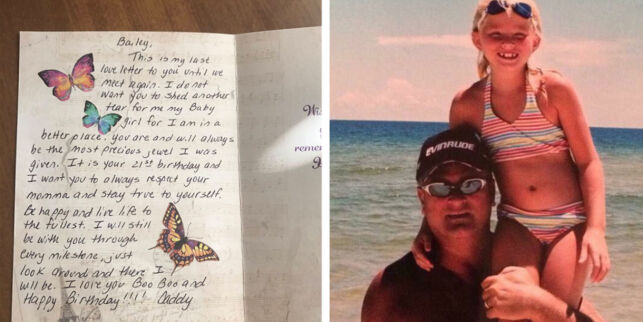 Bailey,
This is my last
love letter to you until we
meet again. I do not
want you to shed another
tear for me my Baby
girl for I am in a
better place. you are and will always
be the most precious jewel I was
given. It is your 21st birthday and
I want you to always respect your
momma and stay true to yourself.
Be happy and live life to
the fullest. I will still
be with you through
every milestone, just
look around and there I
will be. I love you Boo Boo and
Happy Birthday!!!! Daddy
remem
EVINRUDE